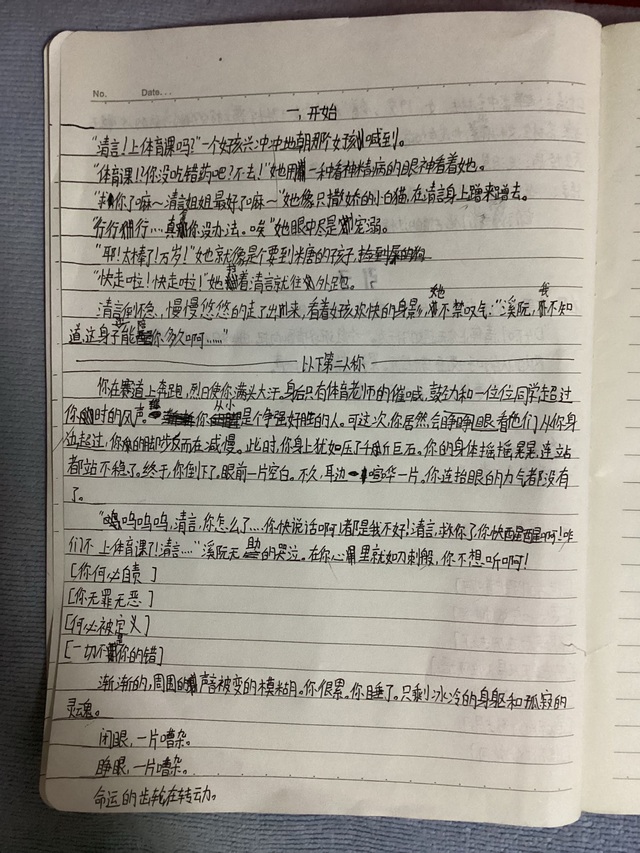 No. Date...
一、开始
"清言！上体育课吗？"一个女孩兴冲冲地朝那个女孩喊到。
"体育课！？你没吃错药吧？不去！"她用一种看神精病的眼神看着她。
"求你了嘛～清言姐姐最好了嘛～"她像只撒娇的小白猫，在清言身上蹭来蹭去。
"行行行....真拿你没办法。唉"她眼中尽是宠溺。
"耶！太棒了！万岁！"她就像是个要到米糖的孩子，
"快走啦！快走啦！"她拉着清言就往外跑。
清言倒不急，慢慢悠悠的走了出来，看着女孩欢快的身影，她不禁叹气："溪阮，我不知
道，这身子能陪你多久啊......"
以下第二人称
你在赛道上奔跑，烈日使你满头大汗。身后只有体育老师的催喊、鼓劲和一位位同学超过
你时的风声。你从小是个争强好胜的人。可这次，你居然会睁睁眼看他们从你身
边超过，你的脚步反而在减慢。此时，你身上犹如压了千斤巨石。你的身体摇摇晃晃，连站
都站不稳了。终于，你倒下了。眼前一片空白。不久，耳边喧华一片。你连抬眼的力气都没有
了。
"呜呜呜，清言，你怎么了....你快说话啊！都是我不好！清言，求你了你快醒醒啊！咱
们不上体育课了！清言...."溪阮无助的哭泣。在你心里就如刀刺般，你不想听啊！
[你何必自责]
[你无罪无恶]
[何必被定义]
[一切不是你的错]
渐渐的，周围的声音被变的模糊。你很累。你睡了。只剩冰冷的身躯和孤寂的
灵魂。
闭眼，一片嘈杂。
睁眼，一片嘈杂。
命运的齿轮在转动。